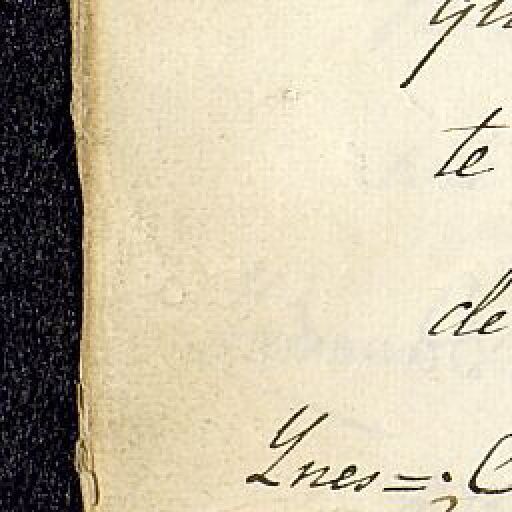 te
de
Ynes=.